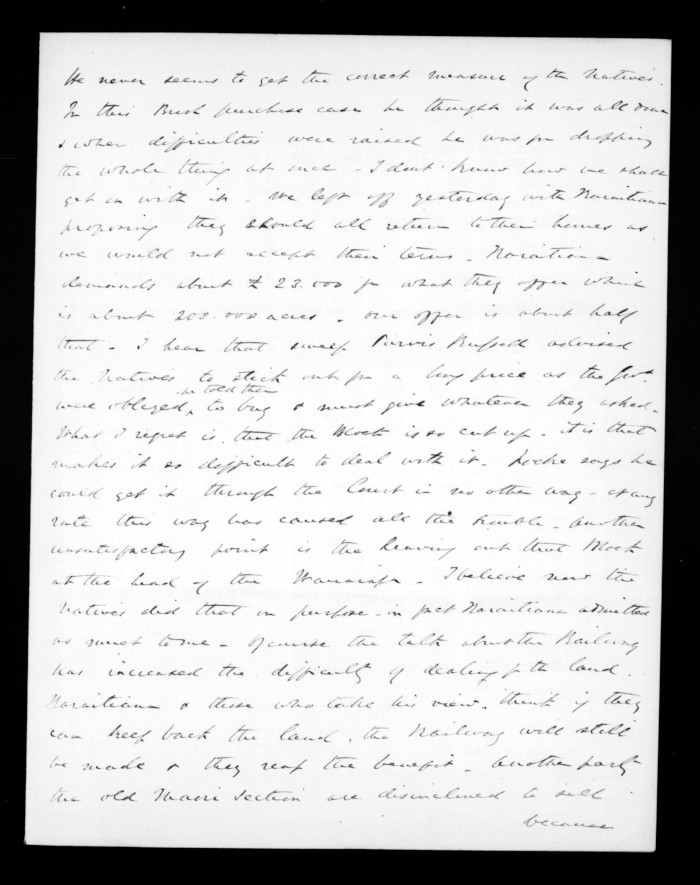 He never seems to get the correct measure of the Natives.
In this Bush purchase case he thought it was all done
& when difficulties were raised he was for dropping
the whole thing at once - I don't know how we shall
get on with it - We left off yesterday with Karaitiana
proposing they should all return to their homes as
we would not accept their terms - Karaitiana
demands about £23.000 for what they offer which
is about 200.000 acres - our offer is about half
that - I hear that sweep Purvis Russell advised
the Natives to stick out for a long price as the Govt
were obliged, he told them to buy & must give whatever they asked -
What I regret is that the Block is so cut up - it is that
makes it so difficult to deal with it - Locke says he
could get it through the Court in no other way - at any
rate this way has caused all the trouble - another
unsatisfactory point is the leaving out that Block
at the head of the - I believe now the
Natives did that on purpose - in fact Karaitiana admitted
as much to me - Of course the talk about the Railway
has increased the difficulty of dealing for the land.
Karaitiana & those who take his view, think if they
can keep back the land, the Railway will still
be made & they reap the benefit - Another party
the old Maori section are disinclined to sell
because